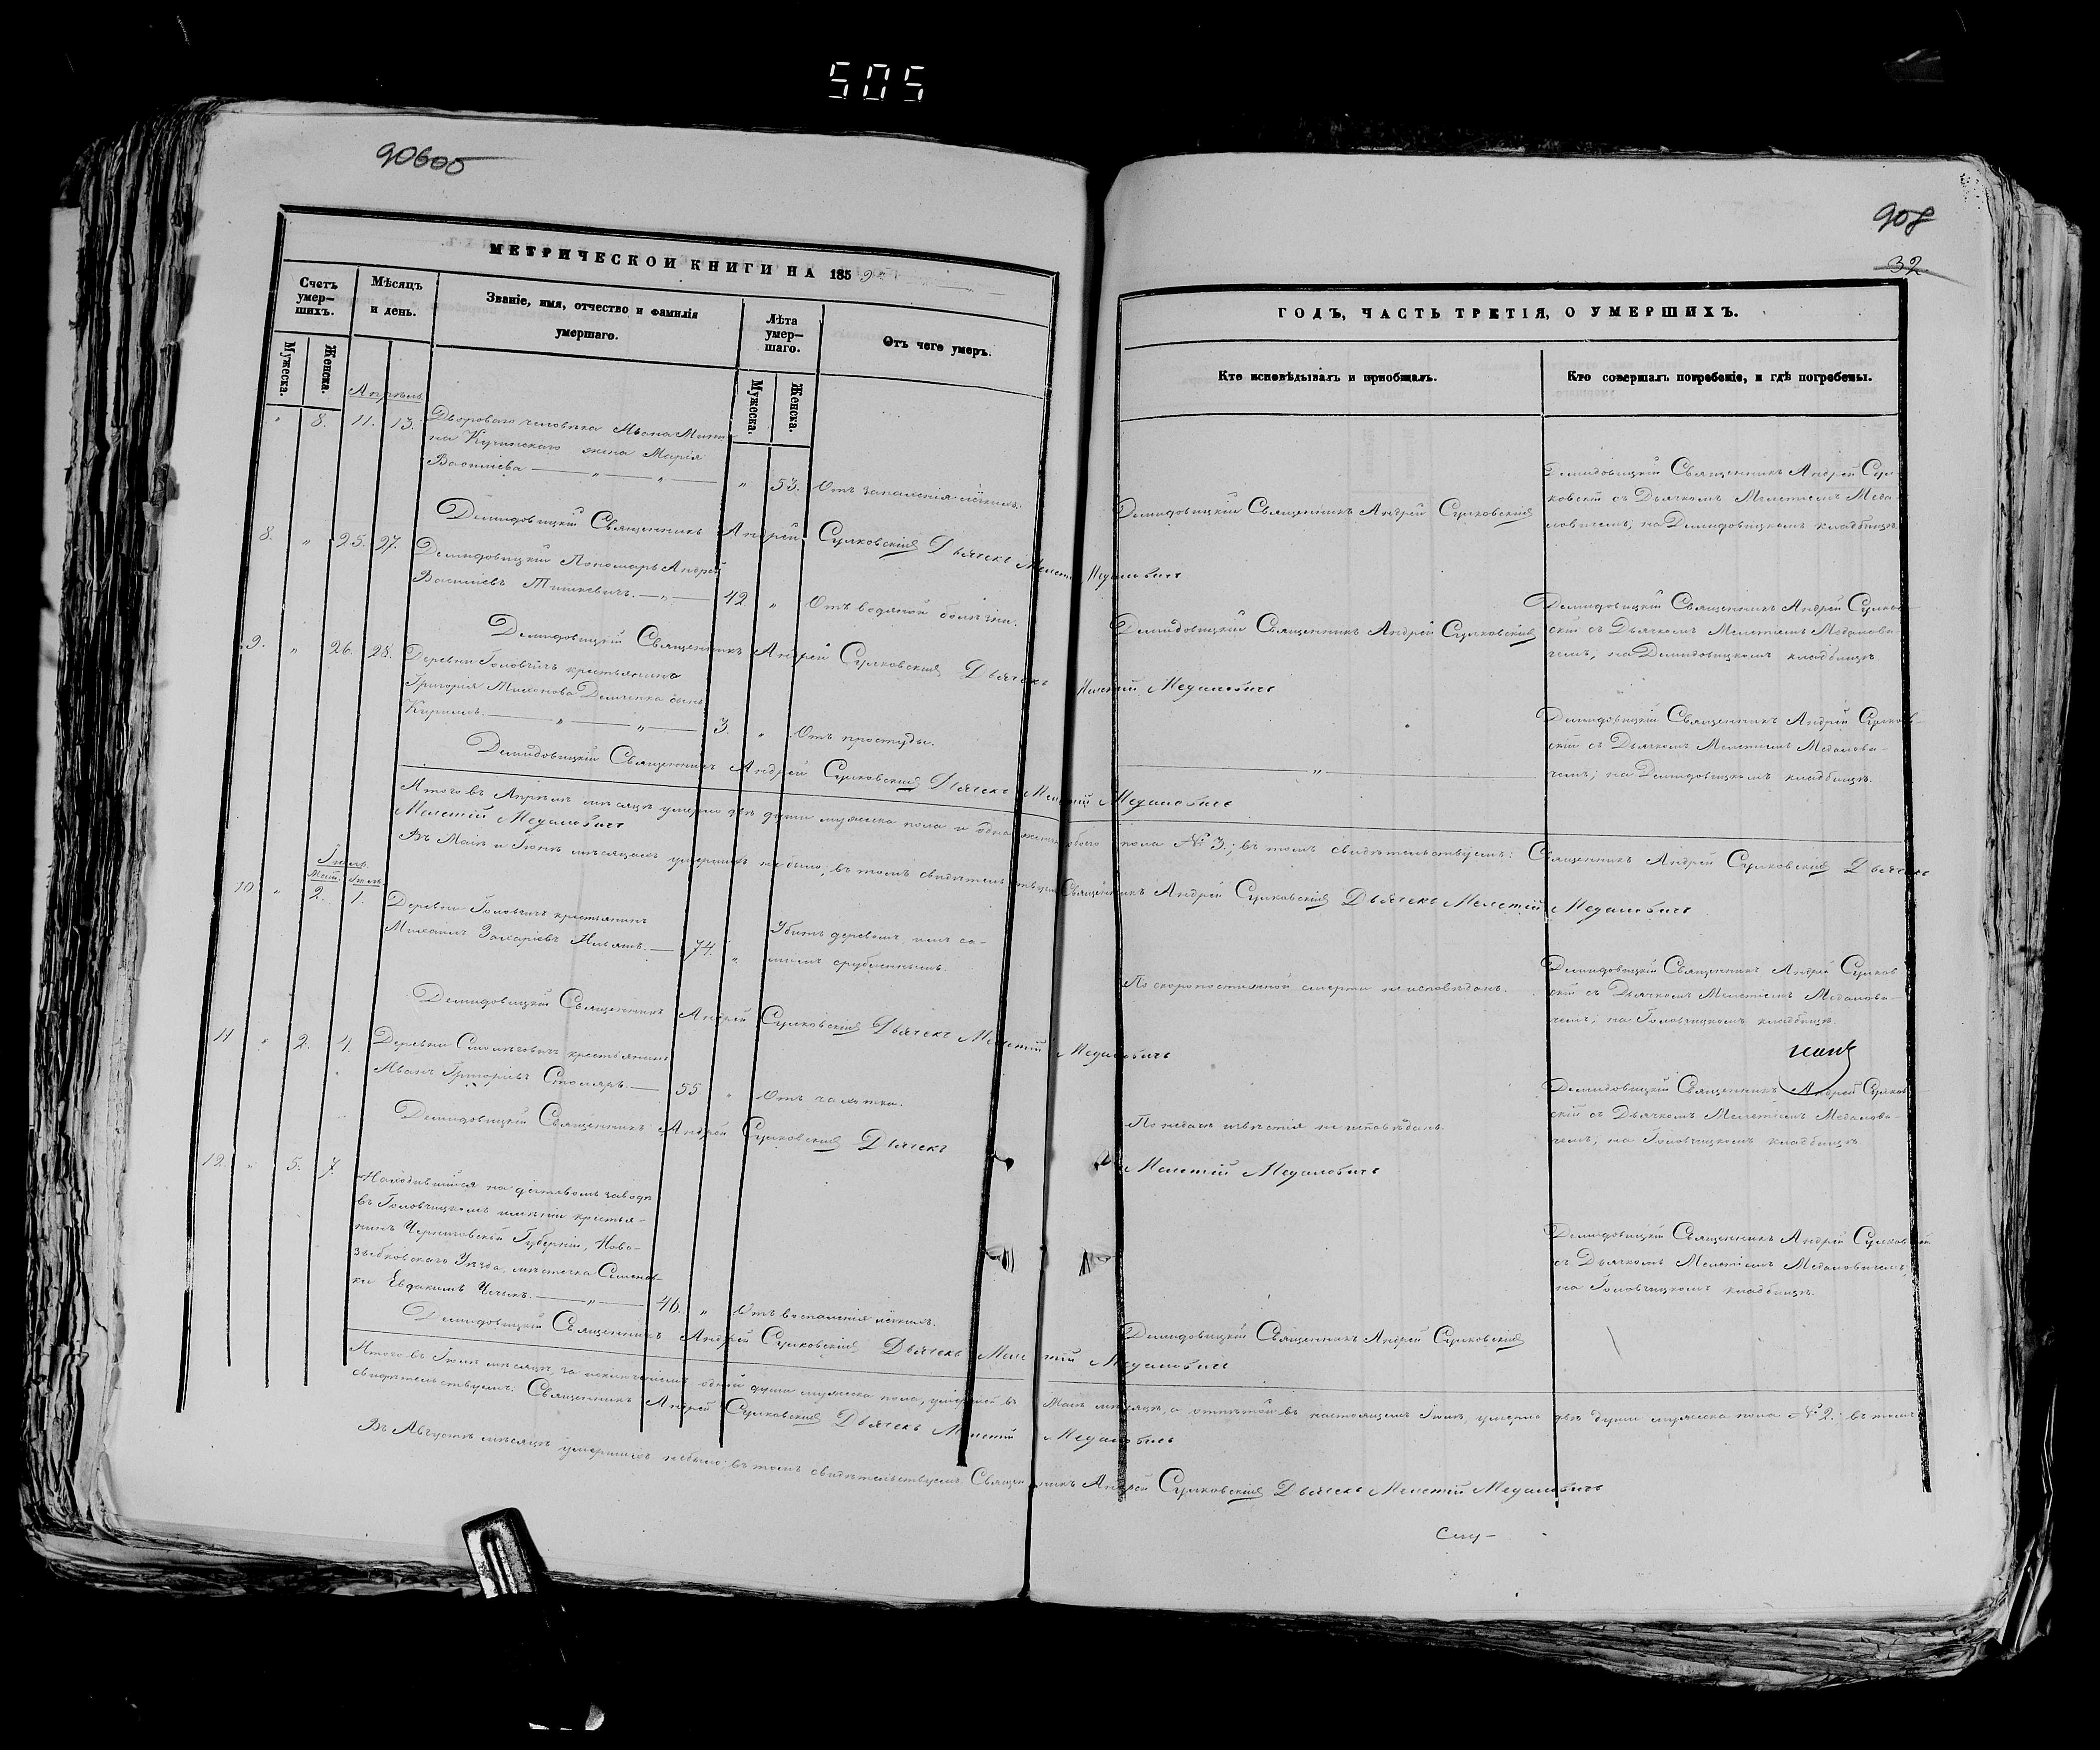 505
90605
908
32
МЕТРИЧЕСКОЙ КНИГИ НА 1859
ГОДЪ, ЧАСТЬ ТРЕТІЯ, О УМЕРШИХЪ.
Счетъ умер-
шихъ.
Мужеска.
Женска.
Мѣсяцъ
и день.
Званіе, имя, отчество и фамилія
умершаго.
Лѣта
умер-
шаго.
Мужеска.
Женска.
Отъ чего умеръ.
Кто исповѣдывалъ и пріобщалъ.
Кто совершалъ погребеніе, и гдѣ погребены.
Апрѣль
" 8. 11. 13. Двороваго человѣка Ивана
на Кучинскаго жена Марія
Василіева — " — " — " 53. Отъ запаленія
Демидовицкій Священникъ Андрей Сулковскій
Демидовицкій Священникъ Андрей Сул-
ковскій съ Дьячкомъ Мелетіемъ Меда-
ловичемъ; на Демидовицкомъ кладбищѣ
Демидовицкій Священникъ Андрей Сулковскій Дьячекъ Мелетій Медаловичъ
8. " 25. 27. Демидовицкій Пономарь Андрей
Василіевъ Тишкевичъ. — " — 42 " Отъ водяной болѣзни.
Демидовицкій Священникъ Андрей Сулковскій
Демидовицкій Священникъ Андрей Сулков-
скій съ Дьячкомъ Мелетіемъ Медалови-
чемъ; на Демидовицкомъ кладбищѣ
Демидовицкій Священникъ Андрей Сулковскій Дьячекъ Мелетій Медаловичъ
9. " 26. 28. Деревни Головчицъ крестьянина
Григорія Демченка сынъ
Кириллъ. — " — " — 3. " Отъ простуды.
— " —
Демидовицкій Священникъ Андрей Сулков-
скій съ Дьячкомъ Мелетіемъ Медалови-
чемъ; на Демидовицкомъ кладбищѣ.
Демидовицкій Священникъ Андрей Сулковскій Дьячекъ Мелетій Медаловичъ
Итого въ Апрѣлѣ мѣсяцѣ умерло двѣ души мужеска пола и одна женскаго пола № 3.; въ томъ свидѣтельствуемъ: Священникъ Андрей Сулковскій Дьячекъ
Мелетій Медаловичъ
Въ Маѣ и Іюнѣ мѣсяцахъ умершихъ не было; въ томъ свидѣтельствуемъ Священникъ Андрей Сулковскій Дьячекъ Мелетій Медаловичъ
10 " 2. 1. Деревни Головчицъ крестьянинъ
Михаилъ Захаріевъ — 74. " Убитъ деревомъ, имъ са-
мимъ срубленнымъ.
По скоропостижной смерти не исповѣданъ.
Демидовицкій Священникъ Андрей Сулков-
скій съ Дьячкомъ Мелетіемъ Медалови-
чемъ; на Головчицкомъ кладбищѣ.
Демидовицкій Священникъ Андрей Сулковскій Дьячекъ Мелетій Медаловичъ
11 " 2. 4. Деревни крестьянинъ
Иванъ Григоріевъ Столяръ. — 55. " Отъ чахотки.
По недачѣ извѣстія не исповѣданъ.
Демидовицкій Священникъ Андрей Сулков-
скій съ Дьячкомъ Мелетіемъ Медалови-
чемъ; на Головчицкомъ кладбищѣ
Демидовицкій Священникъ Андрей Сулковскій Дьячекъ Мелетій Медаловичъ
12 " 5. 7. Находившійся на дегтевомъ заводѣ
въ Головчицкомъ имѣніи крестья-
нинъ Черниговской Губерніи, Ново-
зыбковскаго Уѣзда, мѣстечка Семенов-
ки Евдокимъ — " — 46. " Отъ воспаленія
Демидовицкій Священникъ Андрей Сулковскій
Демидовицкій Священникъ Андрей Сулковскій
съ Дьячкомъ Мелетіемъ Медаловичемъ;
на Головчицкомъ кладбищѣ.
Демидовицкій Священникъ Андрей Сулковскій Дьячекъ Мелетій Медаловичъ
Итого въ мѣсяцѣ, за исключеніемъ одной души мужеска пола, умершей въ Маѣ мѣсяцѣ, а отпѣтой въ настоящемъ умерло двѣ души мужеска пола № 2.; въ томъ
свидѣтельствуемъ: Священникъ Андрей Сулковскій Дьячекъ Мелетій Медаловичъ
Въ Августѣ мѣсяцѣ умершихъ не было; въ томъ свидѣтельствуемъ. Священникъ Андрей Сулковскій Дьячекъ Мелетій Медаловичъ